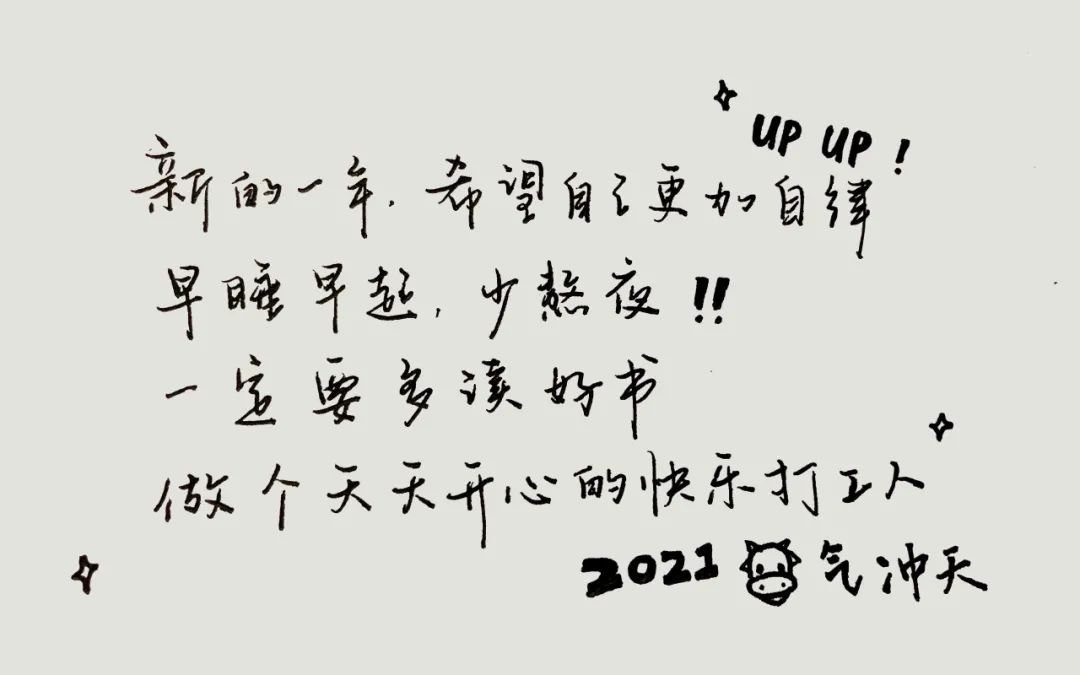 UP UP!
新的一年,希望自己更加自律
早睡早起,少熬夜!!
一定要多读好书
做个天天开心的快乐打工人
2021 气冲天